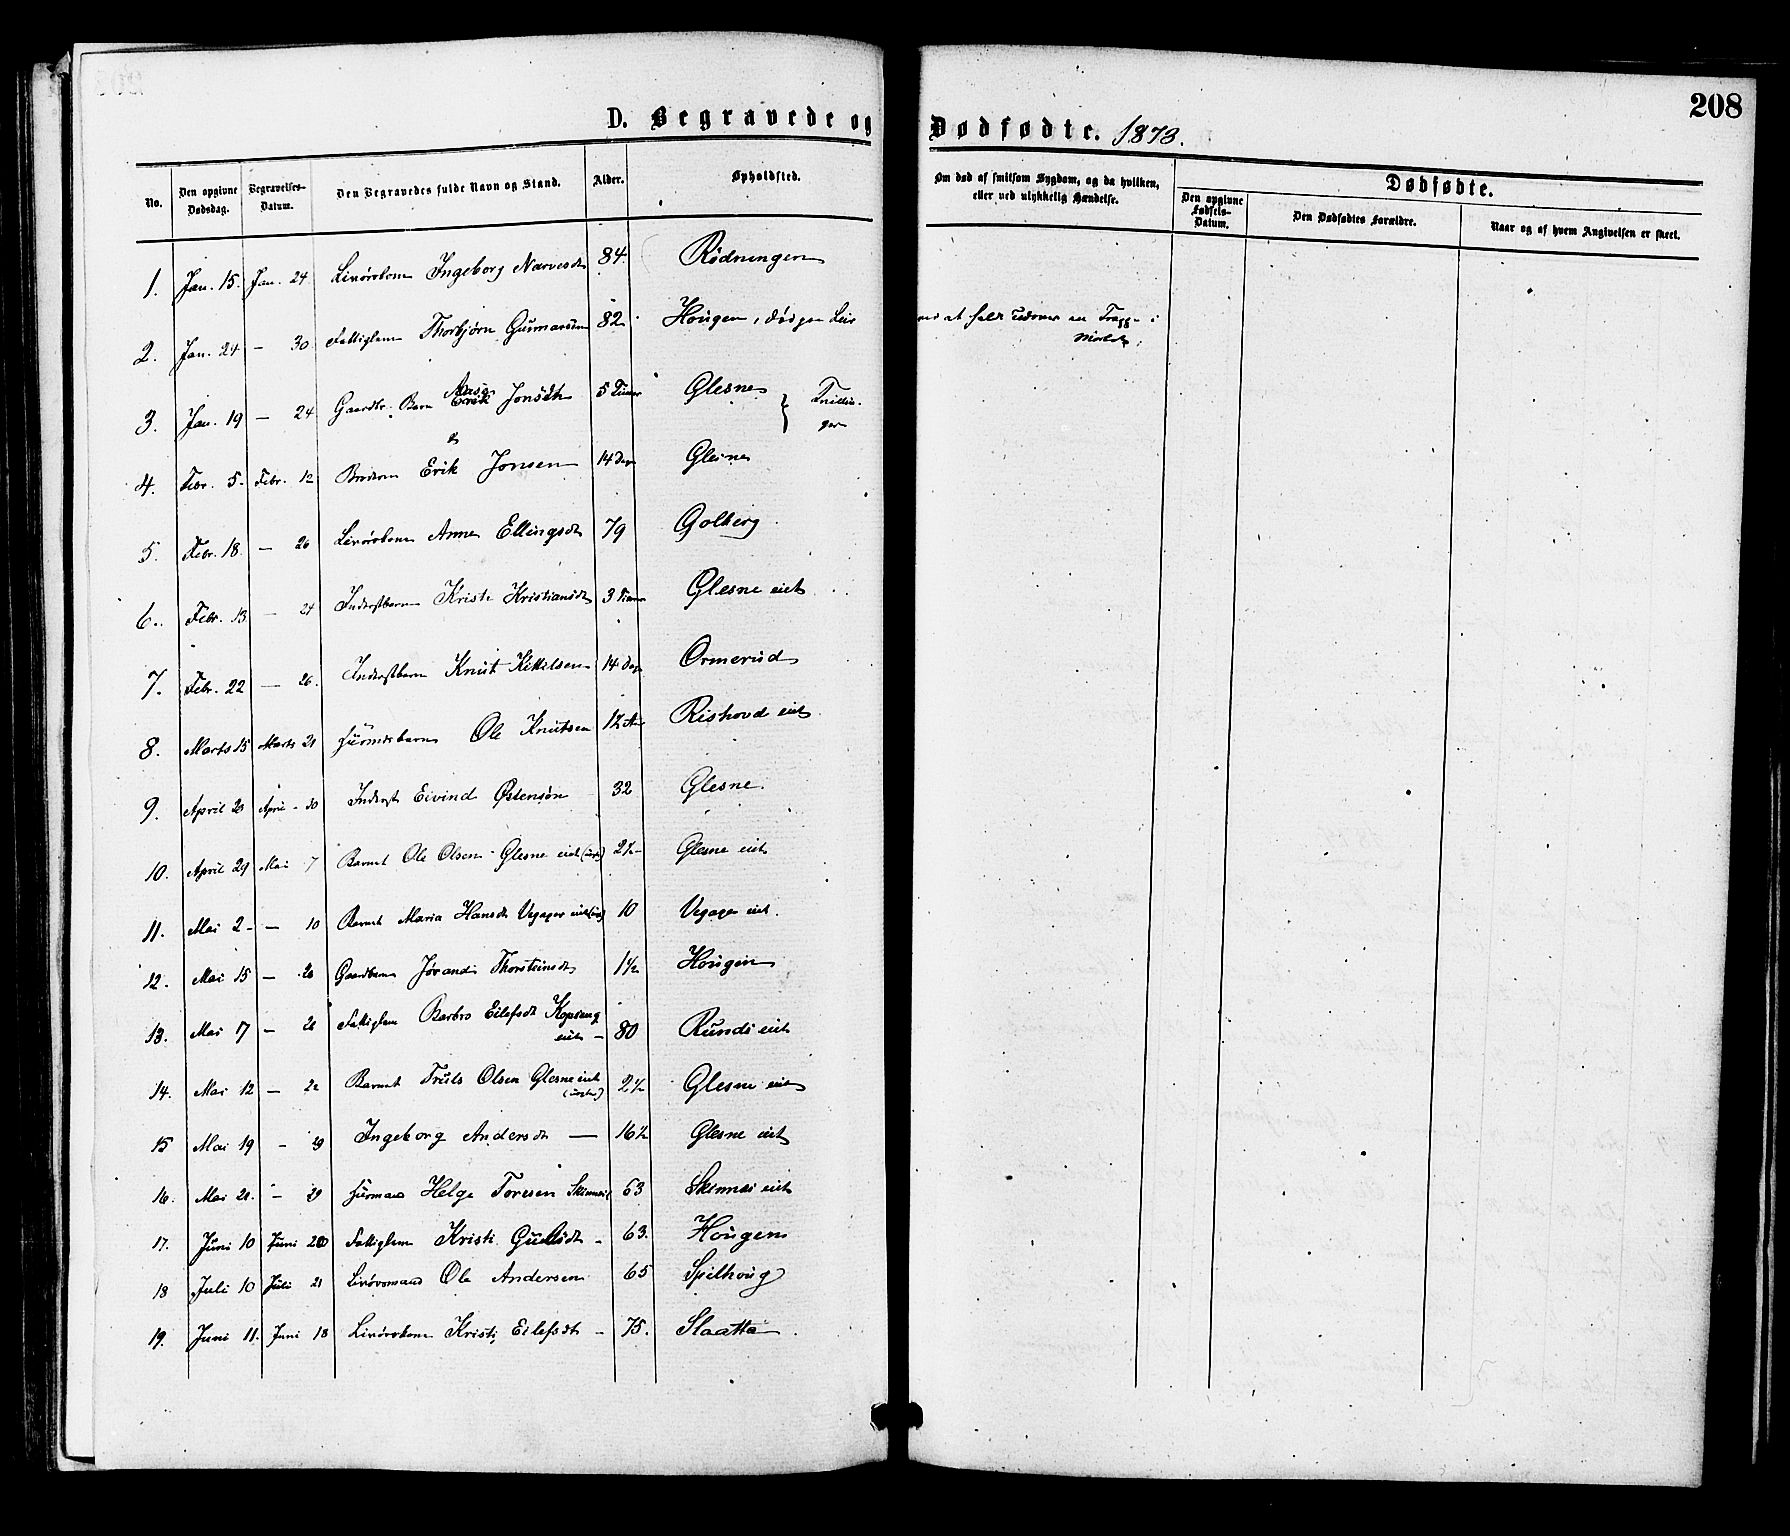 208
D. Begravede og Dødfødte. 1873.
No. Den opgivne Dødsdag. Begravelses-Datum. Den Begravedes fulde Navn og Stand. Alder. Opholdsted. Om død af smitsom Sygdom, og da hvilken, eller ved ulykkelig Hændelse. Dødfødte.
Den opgivne Fødsels-Datum. Den Dødfødtes Forældre. Naar og af hvem Angivelsen er skeet.
1. Jan. 15. Jan. 24 Livørekone Ingeborg Narvesdt 84. Rødningen
2. Jan. 24 — 30 Fattiglem Thorbjørn Gunnarsen 82 Hougen, død paa Leir ved at falde udover en Trapp i Mørket.
3. Jan. 19 — 24 Gaardbr. Barn Aase Jonsdt 5 Timer Glesne } Tvillin-
ger
4. Febr. 5. Febr. 12 Broderen Erik Jonsen 14 Dage Glesne
5. Febr. 18. — 26 Livørekone Anne Ellingsdt 79 Golberg
6. Febr. 13 — 24 Inderstbarn Kristi Kristiansdt 3 Timer Glesne eiet
7. Febr. 22 — 26. Inderstbarn Knut Kittilsen 14 Dage Ormerud
8. Marts 15 Marts 21 Husmdsbarn Ole Knutsen 12 Rishovd eiet
9. April 23 April 30 Inderst Eivind Østensøn 32 Glesne.
10. April 29 Mai 7 Barnet Ole Olsen Glesne eiet 2½ Glesne eiet
11. Mai 2 — 10 Barnet Maria Hansdt Vegager eiet 10 Vegager eiet.
12. Mai 15 — 28 Gaardbarn Jørandi Thorsteinsdt 1½ Hougen
13. Mai 17 — 28 Fattiglem Barbro Eilefsdt Kopseng
eiet — 80 Rundi eiet
14. Mai 12 — 22 Barnet Truls Olsen Glesne eiet 2½ Glesne eiet
15 Mai 19 — 29 Ingeborg Andersdt — 16½ Glesne eiet
16. Mai 21. — 29 Husmand Helge Toresen Skinnes 63 Skinnes eiet
17. Juni 10 Juni 20 Fattiglem Kristi Gulsdt — 63. Hougen
18 Juli 10 Juli 21 Livøremand Ole Andersen 65 Spilhoug
19. Juni 11. Juni 18 Livørekone Kristi Eilefsdt — 75. Slaatta